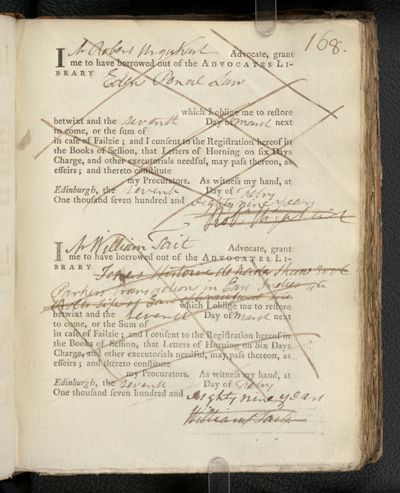 168.
I Mr Robert Urquhart Advocate, grant
me to have borrowed out of the ADVOCATES LI-
BRARY
Edens Penal Law
which I oblige me to restore
betwixt and the seventh Day of March next
to come, or the sum of
in case of Failzie ; and I consent to the Registration hereof in
the Books of Session, that Letters of Horning on six Days
Charge, and other executorials needful, may pass thereon, as
effeirs ; and thereto constitute
my Procurators. As witness my hand, at
Edinburgh, the seventh Day of Febry
One thousand seven hundred and eighty nine years
Rob. Urquhart
I Mr William Tait Advocate, grant
me to have borrowed out of the ADVOCATES LI-
BRARY Histoire de
Parkers Transactions in East Indies
Life of
which I oblige me to restore
betwixt and the seventh Day of March next
to come, or the Sum of
in case of Failzie ; and I consent to the Registration hereof in
the Books of Session, that Letters of Horning on Six Days
Charge, and other executorials needful, may pass thereon, as
effeirs ; and thereto constitute
my Procurators. As witness my hand, at
Edinburgh, the seventh Day of Febry
One thousand seven hundred and eighty nine years
William Tait